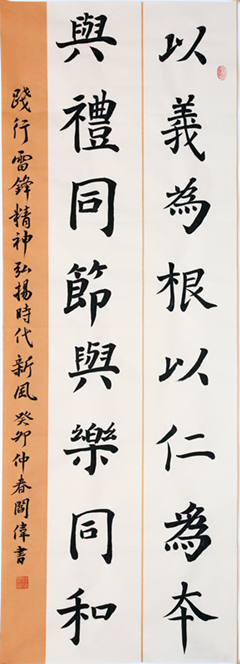 以義為根以仁為本
與禮同節與樂同和
踐行雷鋒精神弘揚時代新風癸卯仲春閻偉書